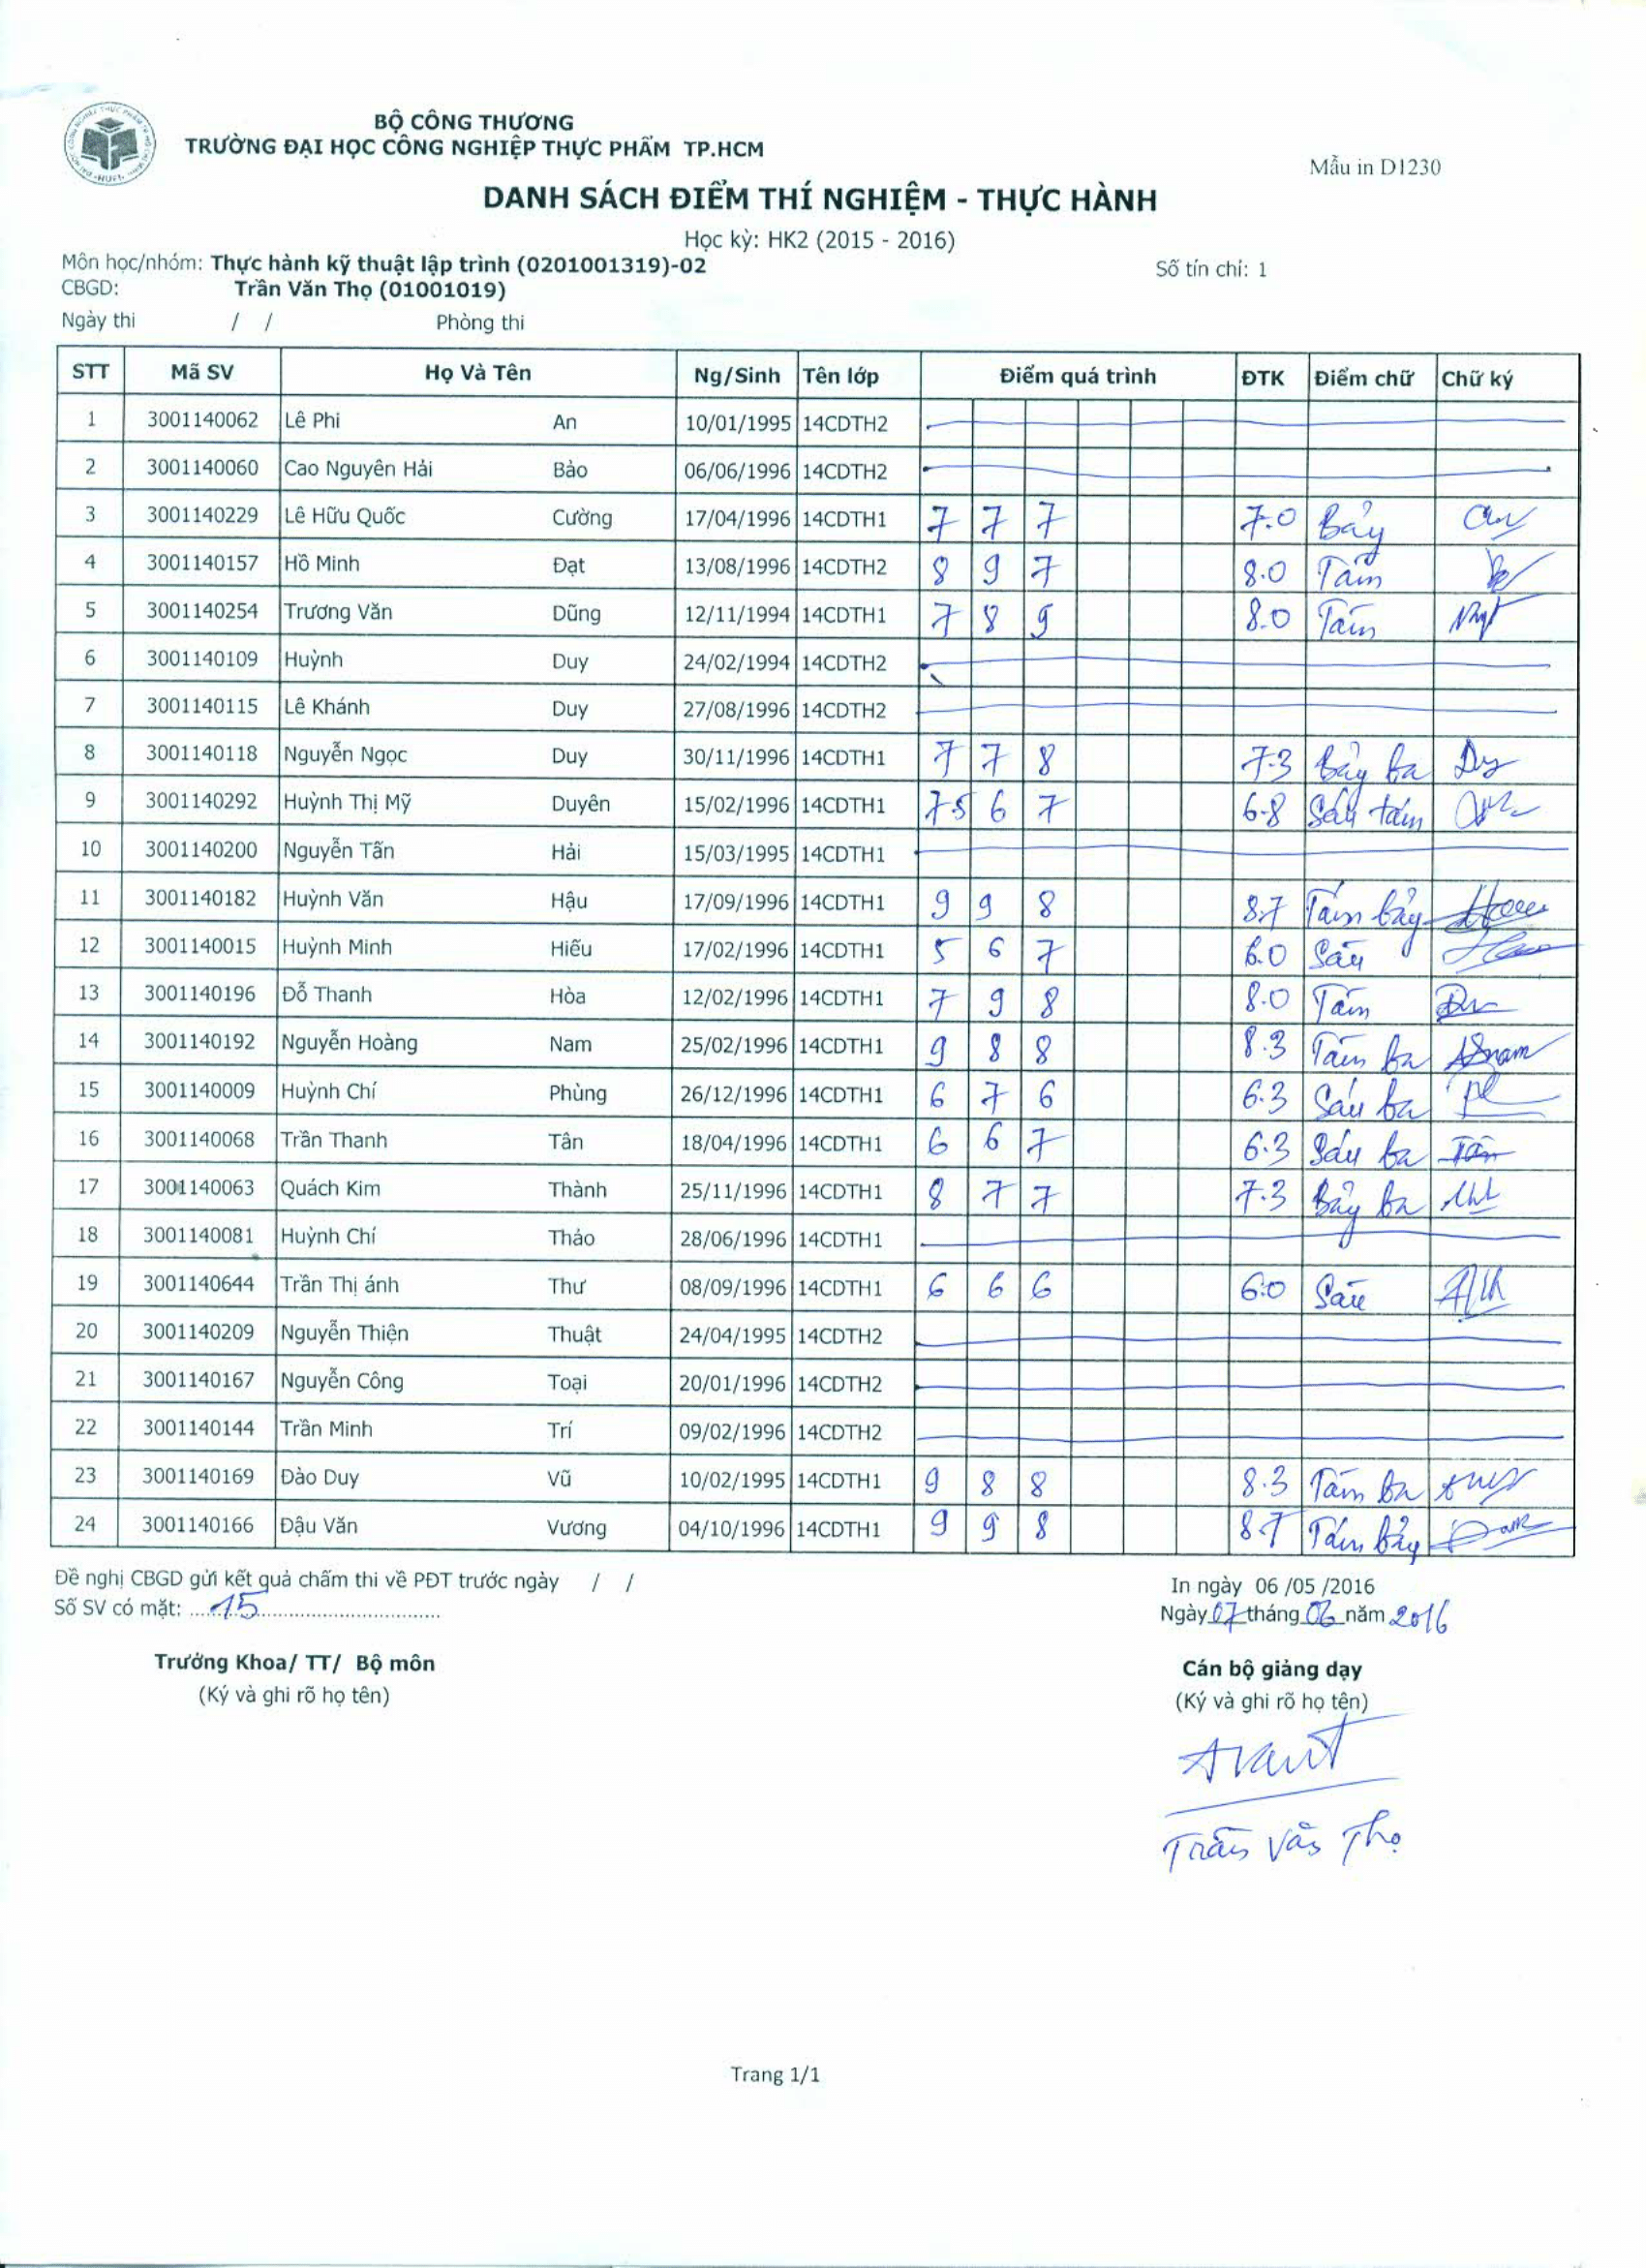 BỘ CÔNG THƯƠNG
TRƯỜNG ĐẠI HỌC CÔNG NGHIỆP THỰC PHẨM TP.HCM
Mẫu in D1230
DANH SÁCH ĐIỂM THÍ NGHIỆM - THỰC HÀNH
Học kỳ: HK2 (2015 - 2016)
Môn học/nhóm: Thực hành kỹ thuật lập trình (0201001319)-02 Số tín chỉ: 1
CBGD: Trần Văn Thọ (01001019)
Ngày thi / / Phòng thi
STT Mã SV Họ Và Tên Ng/Sinh Tên lớp Điểm quá trình ĐTK Điểm chữ Chữ ký
1 3001140062 Lê Phi An 10/01/1995 14CDTH2
2 3001140060 Cao Nguyên Hải Bảo 06/06/1996 14CDTH2
3 3001140229 Lê Hữu Quốc Cường 17/04/1996 14CDTH1 7 7 7 7.0 Bảy
4 3001140157 Hồ Minh Đạt 13/08/1996 14CDTH2 8 9 7 8.0 Tám
5 3001140254 Trương Văn Dũng 12/11/1994 14CDTH1 7 8 9 8.0 Tám
6 3001140109 Huỳnh Duy 24/02/1994 14CDTH2
7 3001140115 Lê Khánh Duy 27/08/1996 14CDTH2
8 3001140118 Nguyễn Ngọc Duy 30/11/1996 14CDTH1 7 7 8 7.3 Bảy ba Duy
9 3001140292 Huỳnh Thị Mỹ Duyên 15/02/1996 14CDTH1 7.5 6 7 6.8 Sáu tám
10 3001140200 Nguyễn Tấn Hải 15/03/1995 14CDTH1
11 3001140182 Huỳnh Văn Hậu 17/09/1996 14CDTH1 9 9 8 8.7 Tám bảy
12 3001140015 Huỳnh Minh Hiếu 17/02/1996 14CDTH1 5 6 7 6.0 Sáu
13 3001140196 Đỗ Thanh Hòa 12/02/1996 14CDTH1 7 9 8 8.0 Tám
14 3001140192 Nguyễn Hoàng Nam 25/02/1996 14CDTH1 9 8 8 8.3 Tám ba
15 3001140009 Huỳnh Chí Phùng 26/12/1996 14CDTH1 6 7 6 6.3 Sáu ba
16 3001140068 Trần Thanh Tân 18/04/1996 14CDTH1 6 6 7 6.3 Sáu ba Tân
17 3001140063 Quách Kim Thành 25/11/1996 14CDTH1 8 7 7 7.3 Bảy ba
18 3001140081 Huỳnh Chí Thảo 28/06/1996 14CDTH1
19 3001140644 Trần Thị ánh Thư 08/09/1996 14CDTH1 6 6 6 6.0 Sáu
20 3001140209 Nguyễn Thiện Thuật 24/04/1995 14CDTH2
21 3001140167 Nguyễn Công Toại 20/01/1996 14CDTH2
22 3001140144 Trần Minh Trí 09/02/1996 14CDTH2
23 3001140169 Đào Duy Vũ 10/02/1995 14CDTH1 9 8 8 8.3 Tám ba
24 3001140166 Đậu Văn Vương 04/10/1996 14CDTH1 9 9 8 8.7 Tám bảy
Đề nghị CBGD gửi kết quả chấm thi về PĐT trước ngày / / In ngày 06 /05 /2016
Số SV có mặt: 15 Ngày 07 tháng 06 năm 2016
Trưởng Khoa/ TT/ Bộ môn Cán bộ giảng dạy
(Ký và ghi rõ họ tên) (Ký và ghi rõ họ tên)
Trần Văn Thọ
Trang 1/1